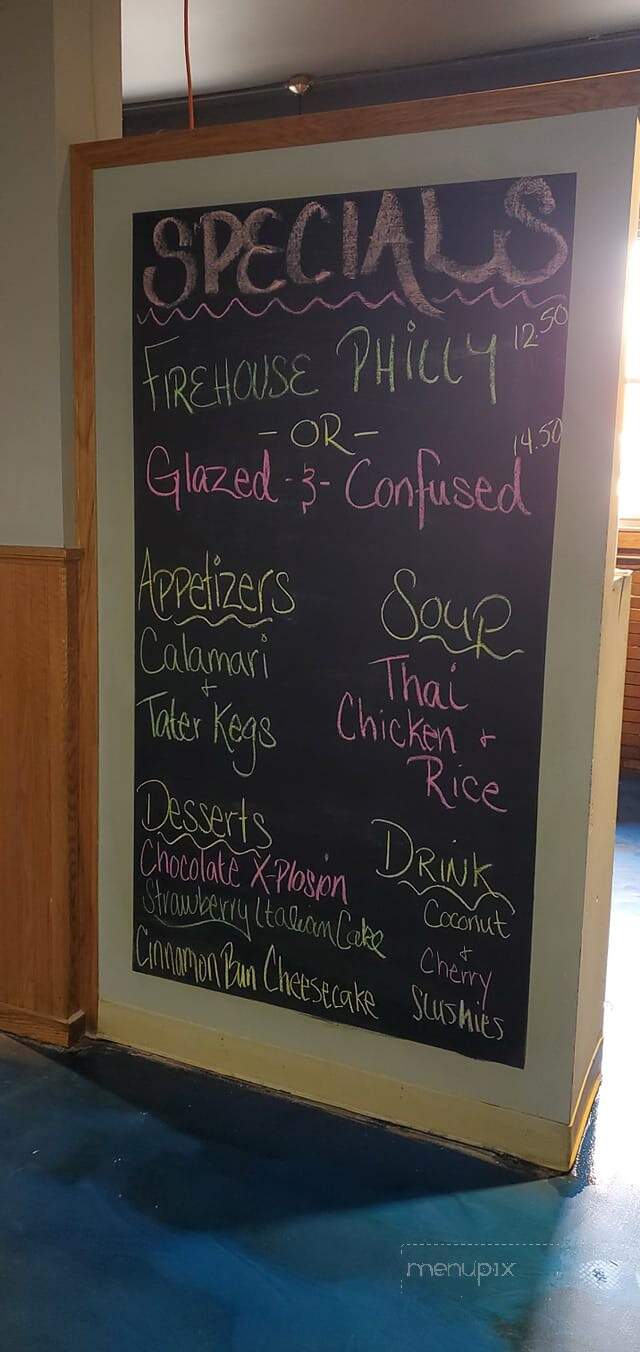 SPECIALS
FIREHOUSE PHILLY 12.50
- OR -
14.50
Glazed -&- Confused
Appetizers
Calamari
+
Tater Kegs
Soup
Thai
Chicken +
Rice
Desserts
Chocolate X-Plosion
Strawberry Italian Cake
Cinnamon Bun Cheesecake
DRINK
Coconut
+
Cherry
Slushies
menupix